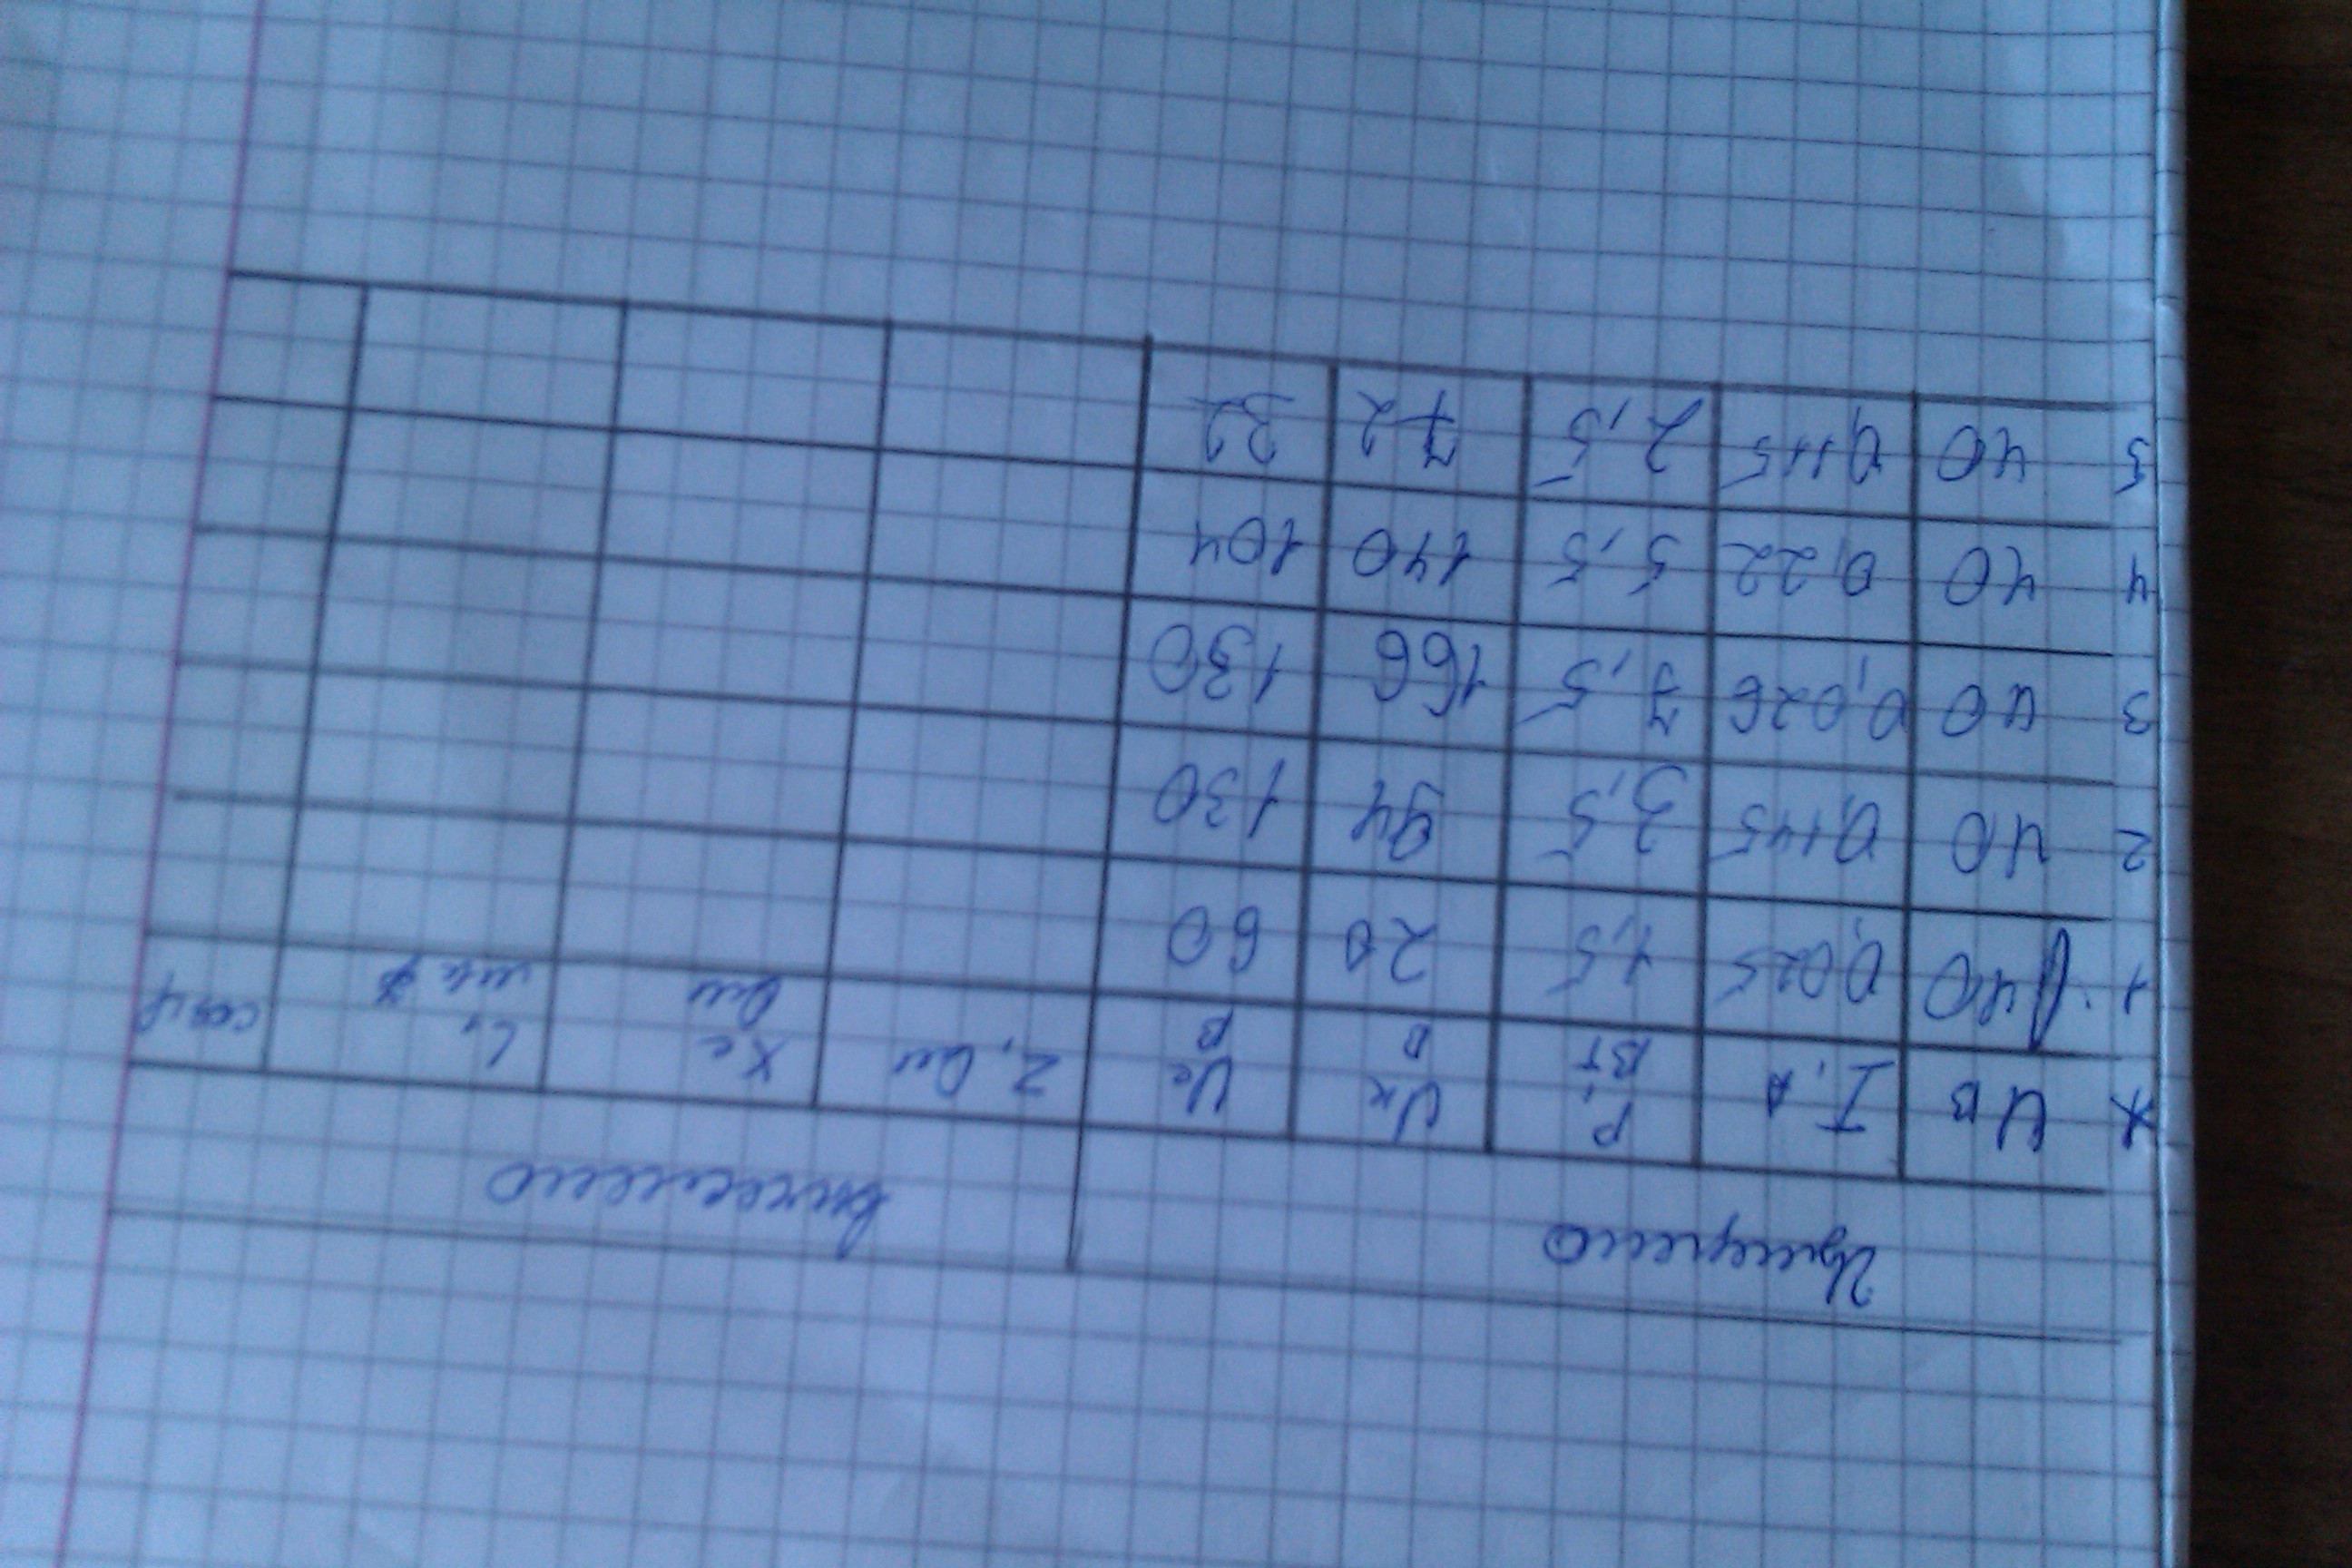 Измерено Вычислено
№ U В I, А P, Вт Uк В Uс В Z, Ом Xc Ом L, cosφ
1. 40 0,025 1,5 20 60
2 40 0,145 3,5 94 130
3 40 0,026 7,5 166 130
4 40 0,22 5,5 140 104
5 40 0,115 2,5 72 32